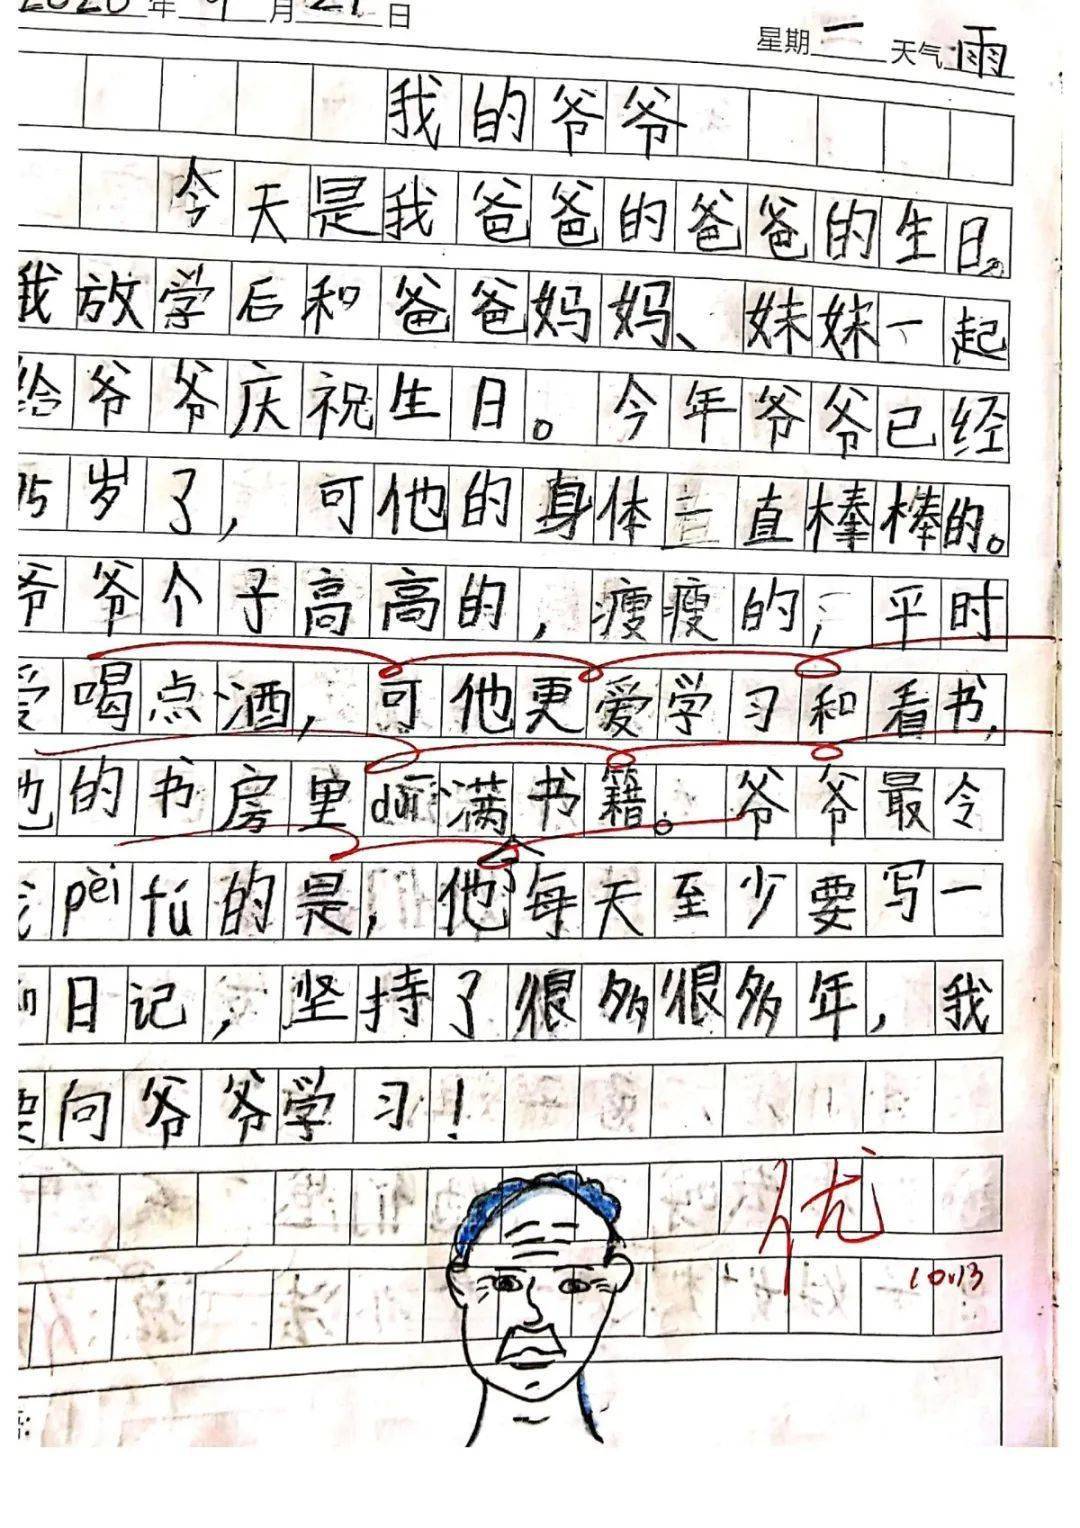 2020年9月21日
星期一 天气雨
我的爷爷
今天是我爸爸的爸爸的生日。
我放学后和爸爸妈妈、妹妹一起
给爷爷庆祝生日。今年爷爷已经
75岁了，可他的身体一直棒棒的。
爷爷个子高高的，瘦瘦的，平时
爱喝点酒，可他更爱学习和看书，
他的书房里duī满书籍。爷爷最令
我pèi fú的是，他每天至少要写一
日记，坚持了很多很多年，我
要向爷爷学习！
优
10.13